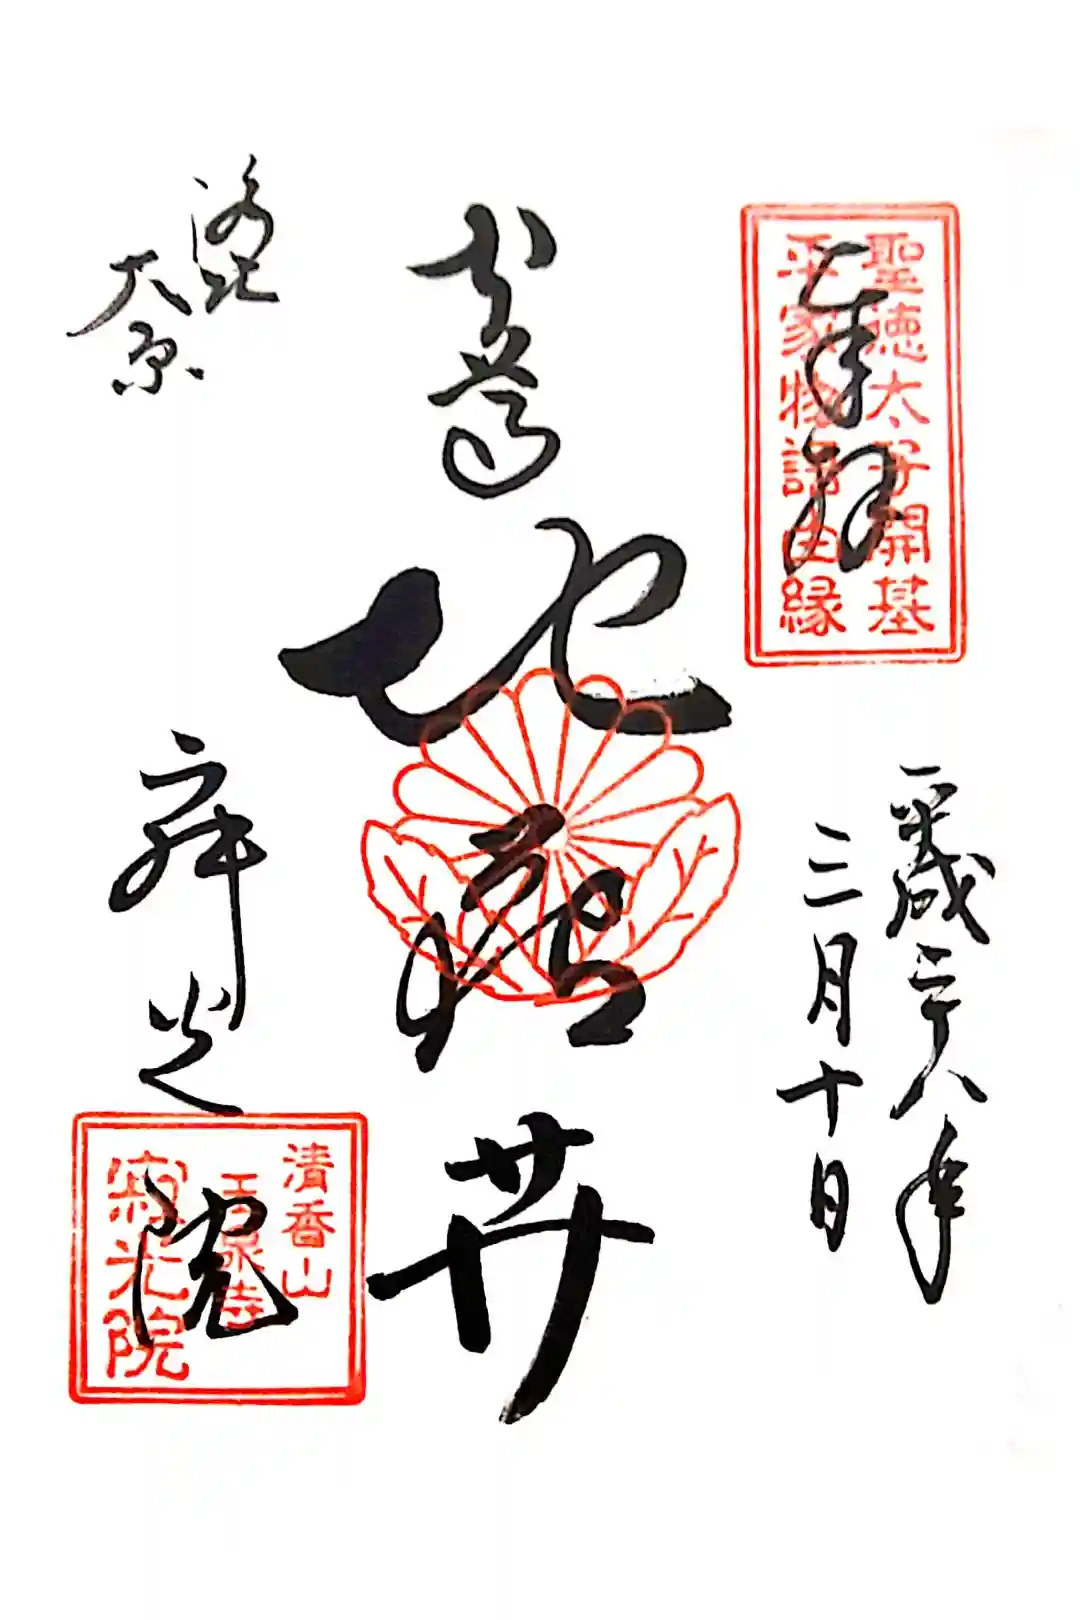 奉拝
聖徳太子開基
平家物語由縁
平成二十八年
三月十日
地蔵𦬇
洛北
大原
寂光院
清香山
玉泉寺
寂光院